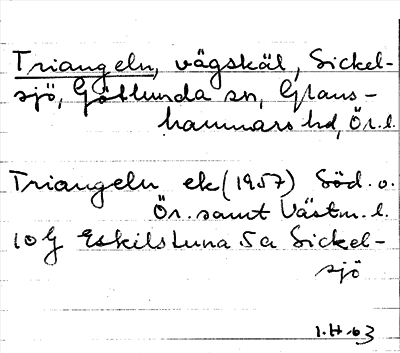 Triangeln, vägskäl, Sickel-
sjö, Götlunda sn, Glans-
hammars hd, Ör. l.
Triangeln ek (1957) Söd. o.
Ör. samt Västm. l.
10 G Eskilstuna 5a Sickel-
sjö